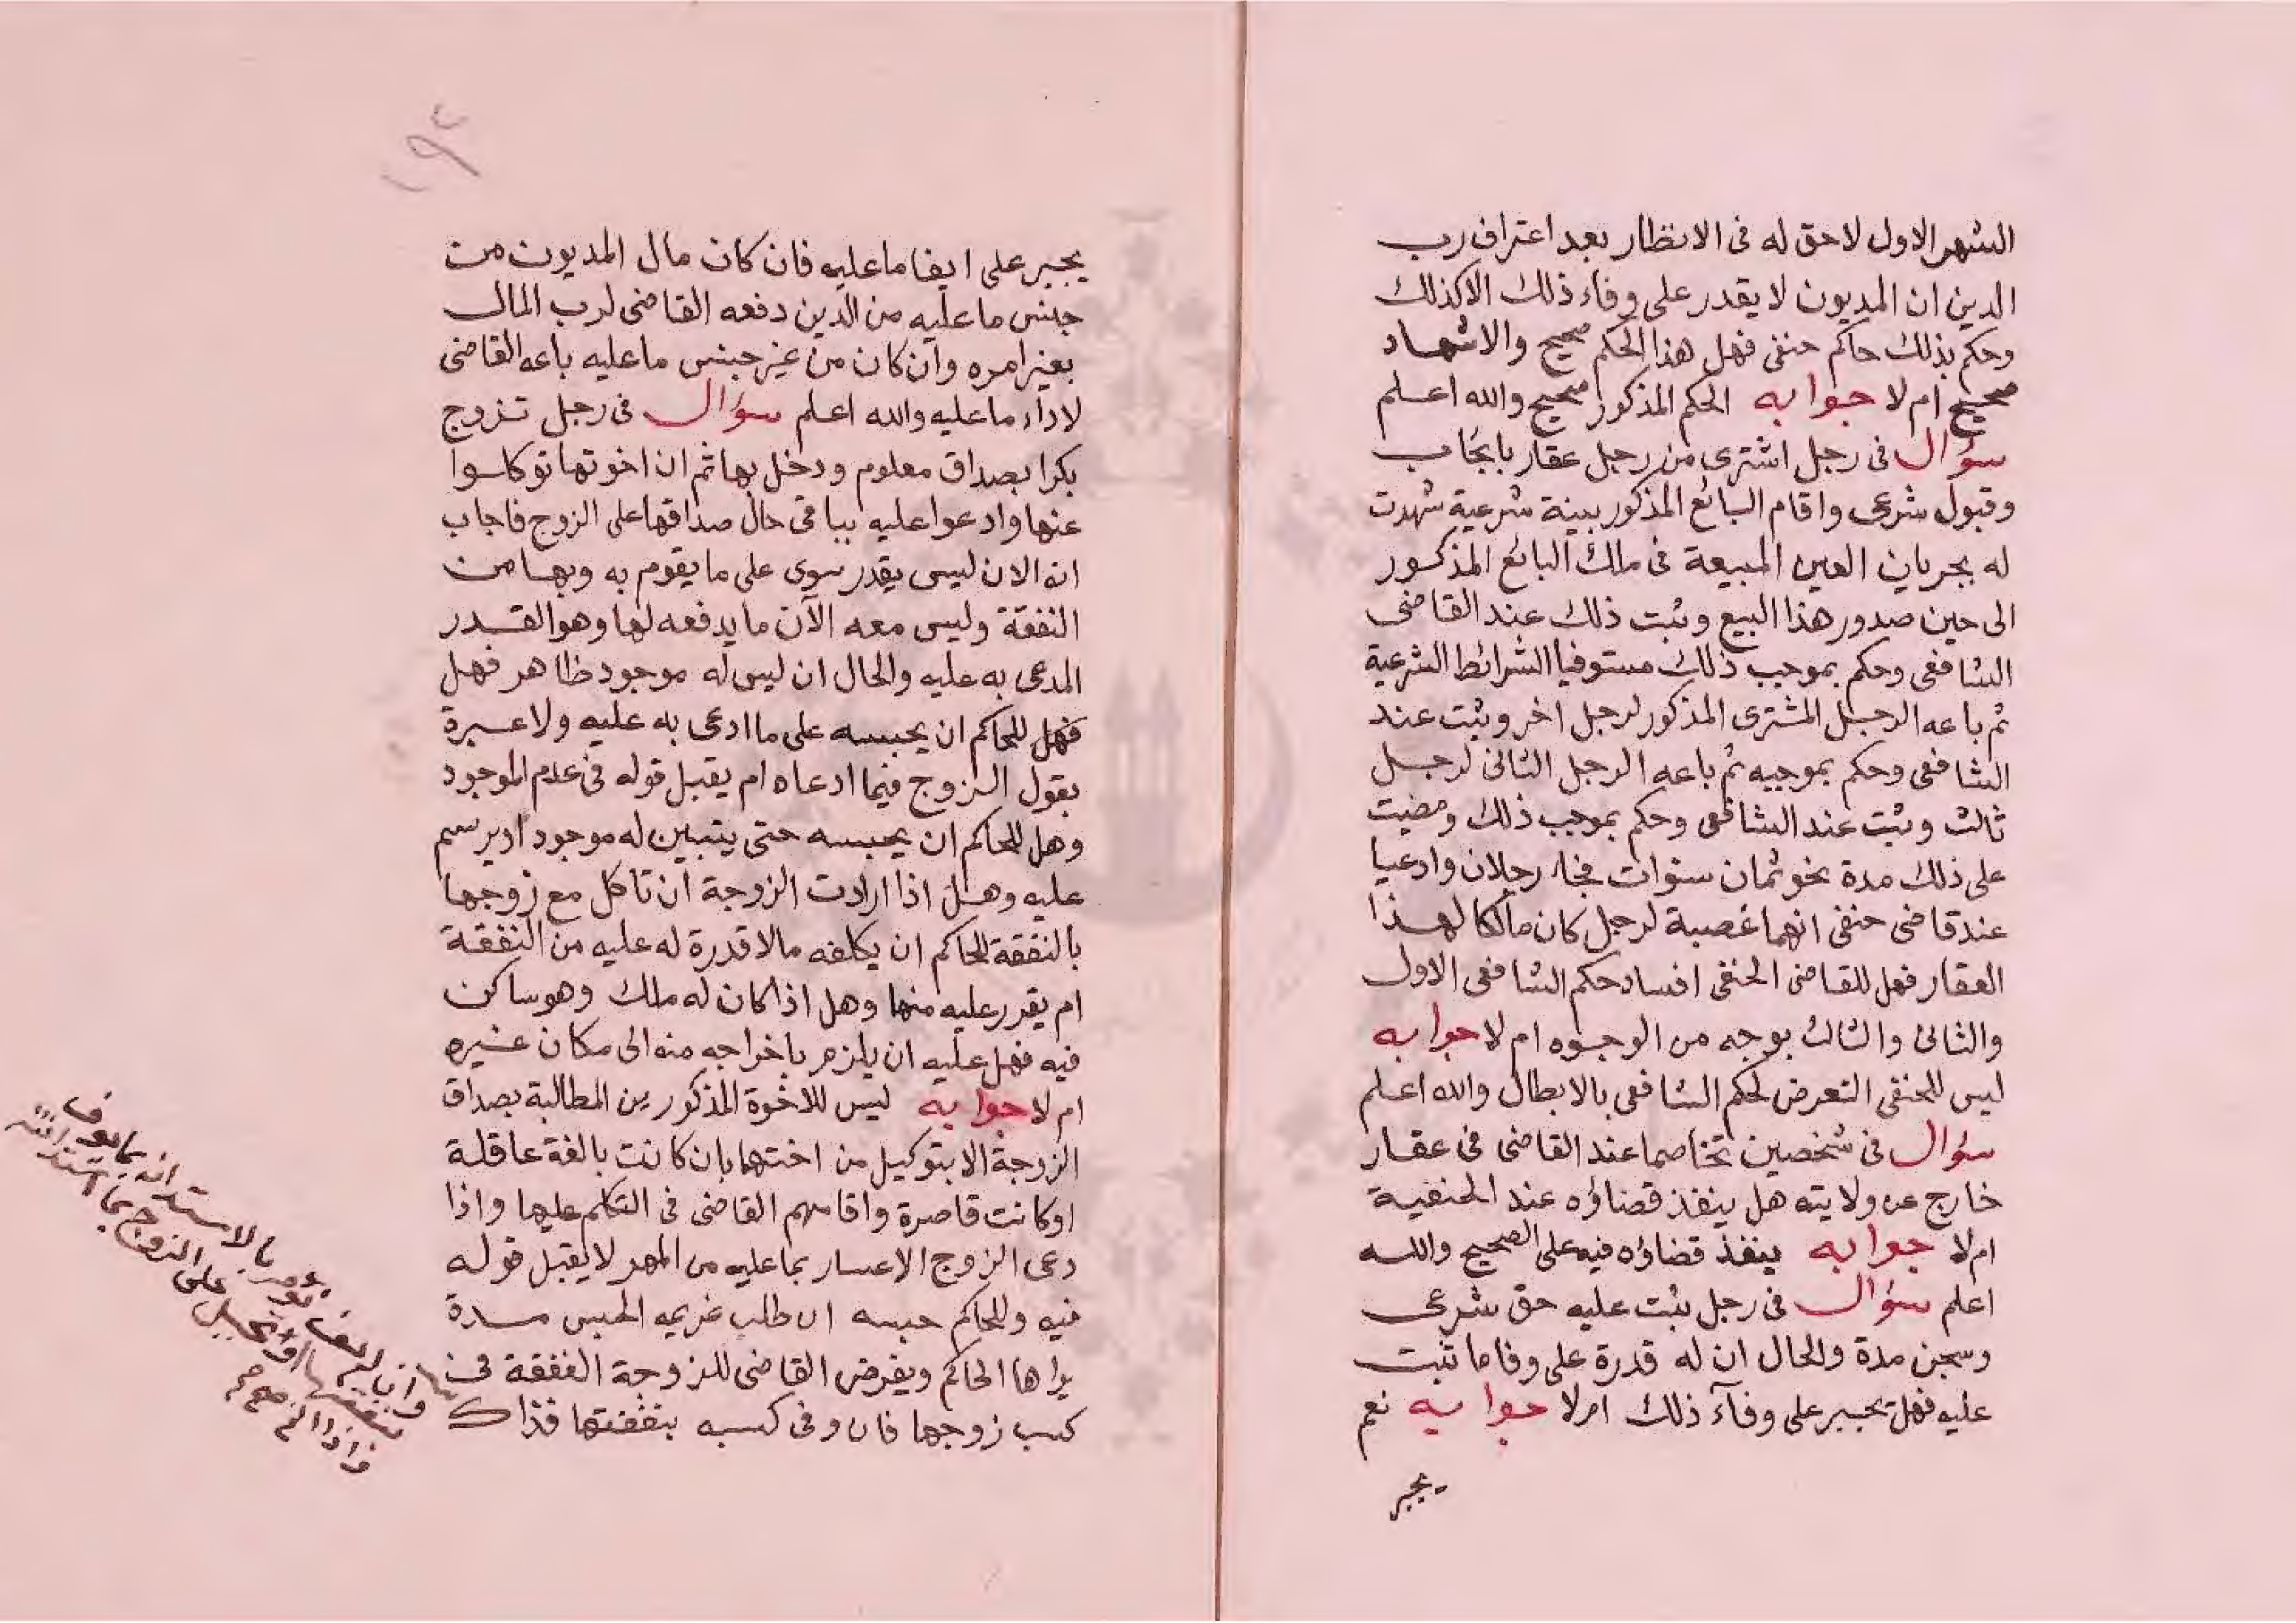 الشهر الاول لا حق له فى الانظار بعد اعتراف رب
الدين ان المديون لا يقدر على وفاء ذلك الا كذلك
وحكم بذلك حاكم حنفى فهل هذا الحكم صحيح والاشهاد
صحيح ام لا جوابه الحكم المذكور صحيح والله اعلم
سؤال فى رجل اشترى من رجل عقار بايجاب
وقبول شرعى واقام البائع المذكور ببينة شرعية شهدت
له بجريان العين المبيعة فى ملك البائع المذكور
الى حين صدور هذا البيع وثبت ذلك عند القاضى
الشافعى وحكم بموجب ذلك مستوفيا الشرائط الشرعية
ثم باعه الرجل المشترى المذكور لرجل اخر وثبت عند
الشافعى وحكم بموجبه ثم باعه الرجل الثانى لرجل
ثالث وثبت عند الشافعى وحكم بموجب ذلك ومضيت
على ذلك مدة نحو ثمان سنوات فجاء رجلان وادعيا
عند قاضى حنفى انهما عصبة لرجل كان مالكا لهذا
العقار فهل للقاضى الحنفى افساد حكم الشافعى الاول
والثانى والثالث بوجه من الوجوه ام لا جوابه
ليس للحنفى التعرض لحكم الشافعى بالابطال والله اعلم
سؤال فى شخصين تخاصما عند القاضى فى عقار
خارج عن ولايته هل ينفذ قضاؤه عند الحنفية
ام لا جوابه ينفذ قضاؤه فيه على الصحيح والله
اعلم سؤال فى رجل ثبت عليه حق شرعى
وسجن مدة والحال ان له قدرة على وفا ما ثبت
عليه فهل يجبر على وفآء ذلك ام لا جوابه نعم
يجبر
١٩٢
يجبر على ايفا ما عليه فان كان مال المديون من
جنس ما عليه من الدين دفعه القاضى لرب المال
بغير امره وان كان من غير جنس ما عليه باعه القاضى
لاداء ما عليه والله اعلم سؤال فى رجل تزوج
بكرا بصداق معلوم ودخل بها ثم ان اخوتها توكلوا
عنها وادعوا عليه بباقى حال صداقها على الزوج فاجاب
انه الان ليس يقدر سوى على ما يقوم به وبها من
النفقة وليس معه الآن ما يدفعه لها وهو القدر
المدعى به عليه والحال ان ليس له موجود ظاهر فهل
فهل للحاكم ان يحبسه على ما ادعى به عليه ولا عبرة
بقول الزوج فيما ادعاه ام يقبل قوله فى عدم الموجود
وهل للحاكم ان يحبسه حتى يتبين له موجود او يرسم
عليه وهل اذا ارادت الزوجة ان تاكل مع زوجها
بالنفقة للحاكم ان يكلفه مالا قدرة له عليه من النفقة
ام يقرر عليه منها وهل اذا كان له ملك وهو ساكن
فيه فهل عليه ان يلزم باخراجه منه الى مكان غيره
ام لا جوابه ليس للاخوة المذكورين المطالبة بصداق
الزوجة الا بتوكيل من اختهما بان كانت بالغة عاقلة
او كانت قاصرة واقامهم القاضى فى التكلم عليها واذا
دعى الزوج الاعسار بما عليه من المهر لا يقبل قوله
فيه وللحاكم حبسه ان طلب غريمه الحبس مدة
يراها الحاكم ويفرض القاضى للزوجة النفقة فى
كسب زوجها فان وفى كسبه بنفقتها فذاك
وان لم يف تؤمر بالاستدانه
على الزوج بما